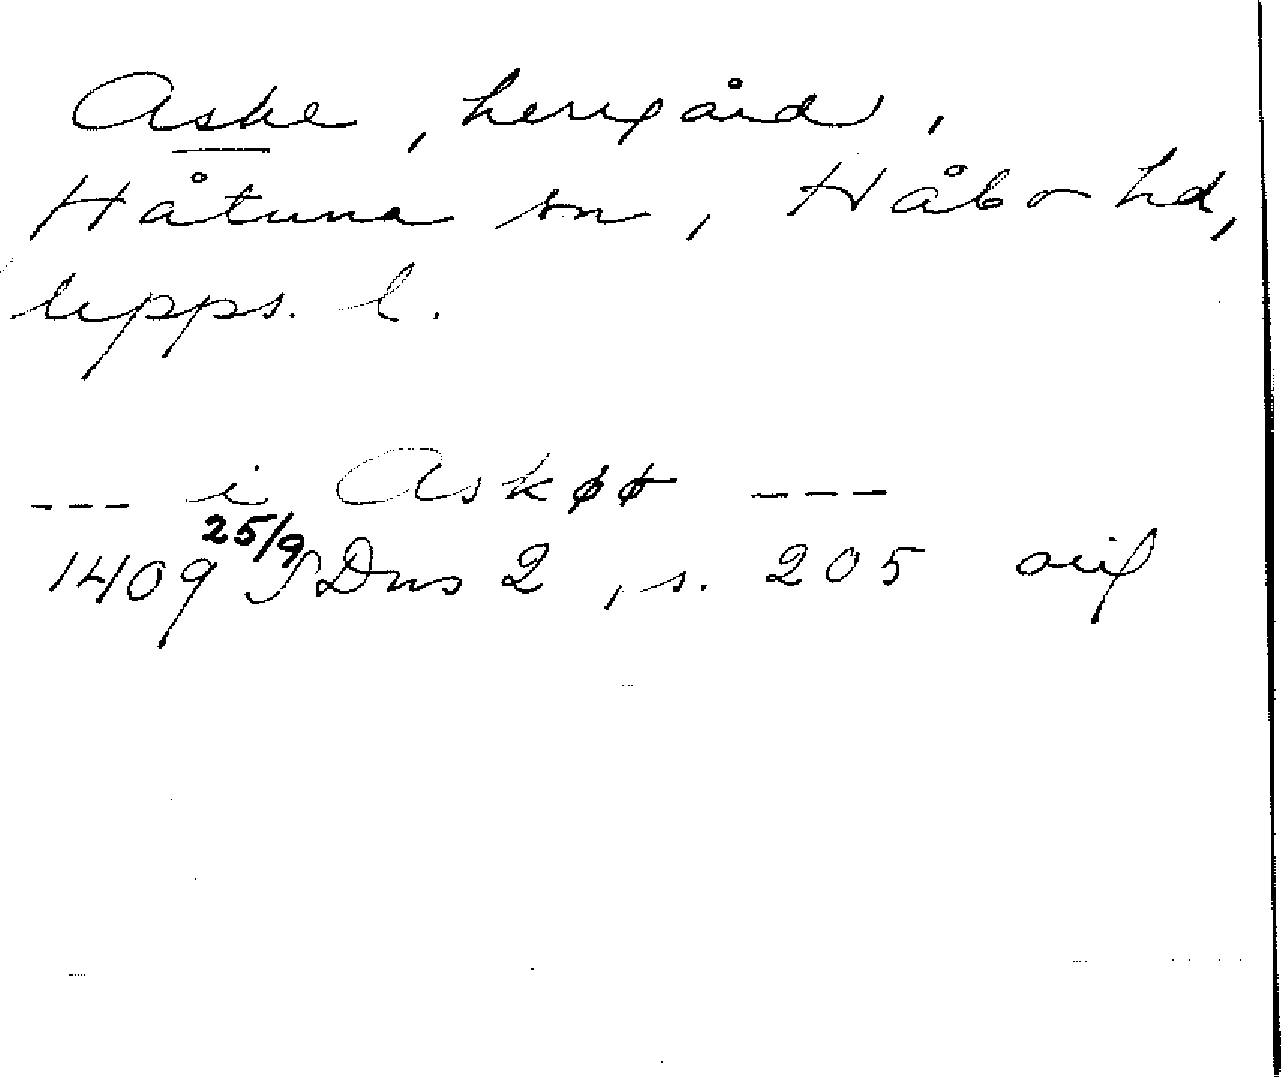 Aske, herrgård,
Håtuna sn, Håbo hd,
Upps. l.
--- i Askøø ---
1409 25/9 SDns 2, s. 205 orig